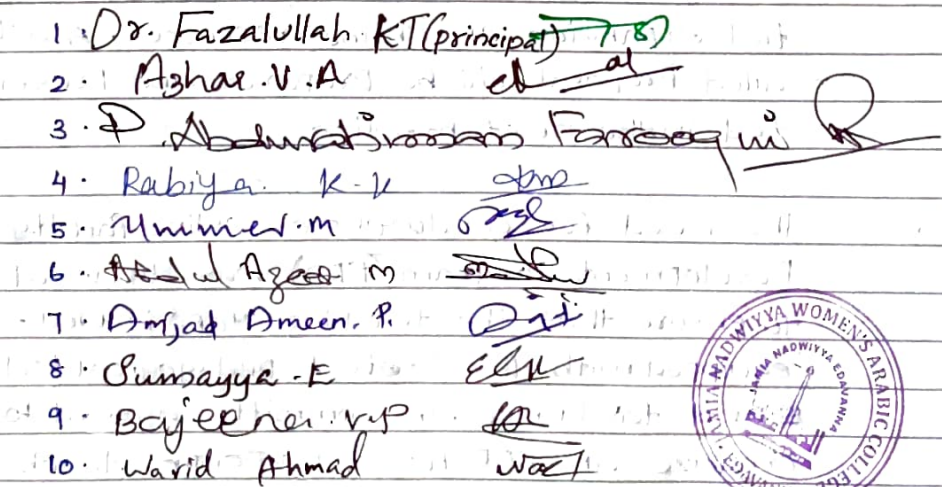 1. Dr. Fazalullah. KT (principal)
2. Azhar. V. A
3. P. Abdurahiman Farooqui
4. Rabiya. K.K
5. Ummier. M
6. Abdul Azeez M
7. Amjad Ameen. P.
8. Sumayya. E
9. Bajeena. V.P
10. Warid Ahmad
JAMIA NADWIYYA WOMEN'S ARABIC COLLEGE
JAMIA NADWIYYA EDAVANNA